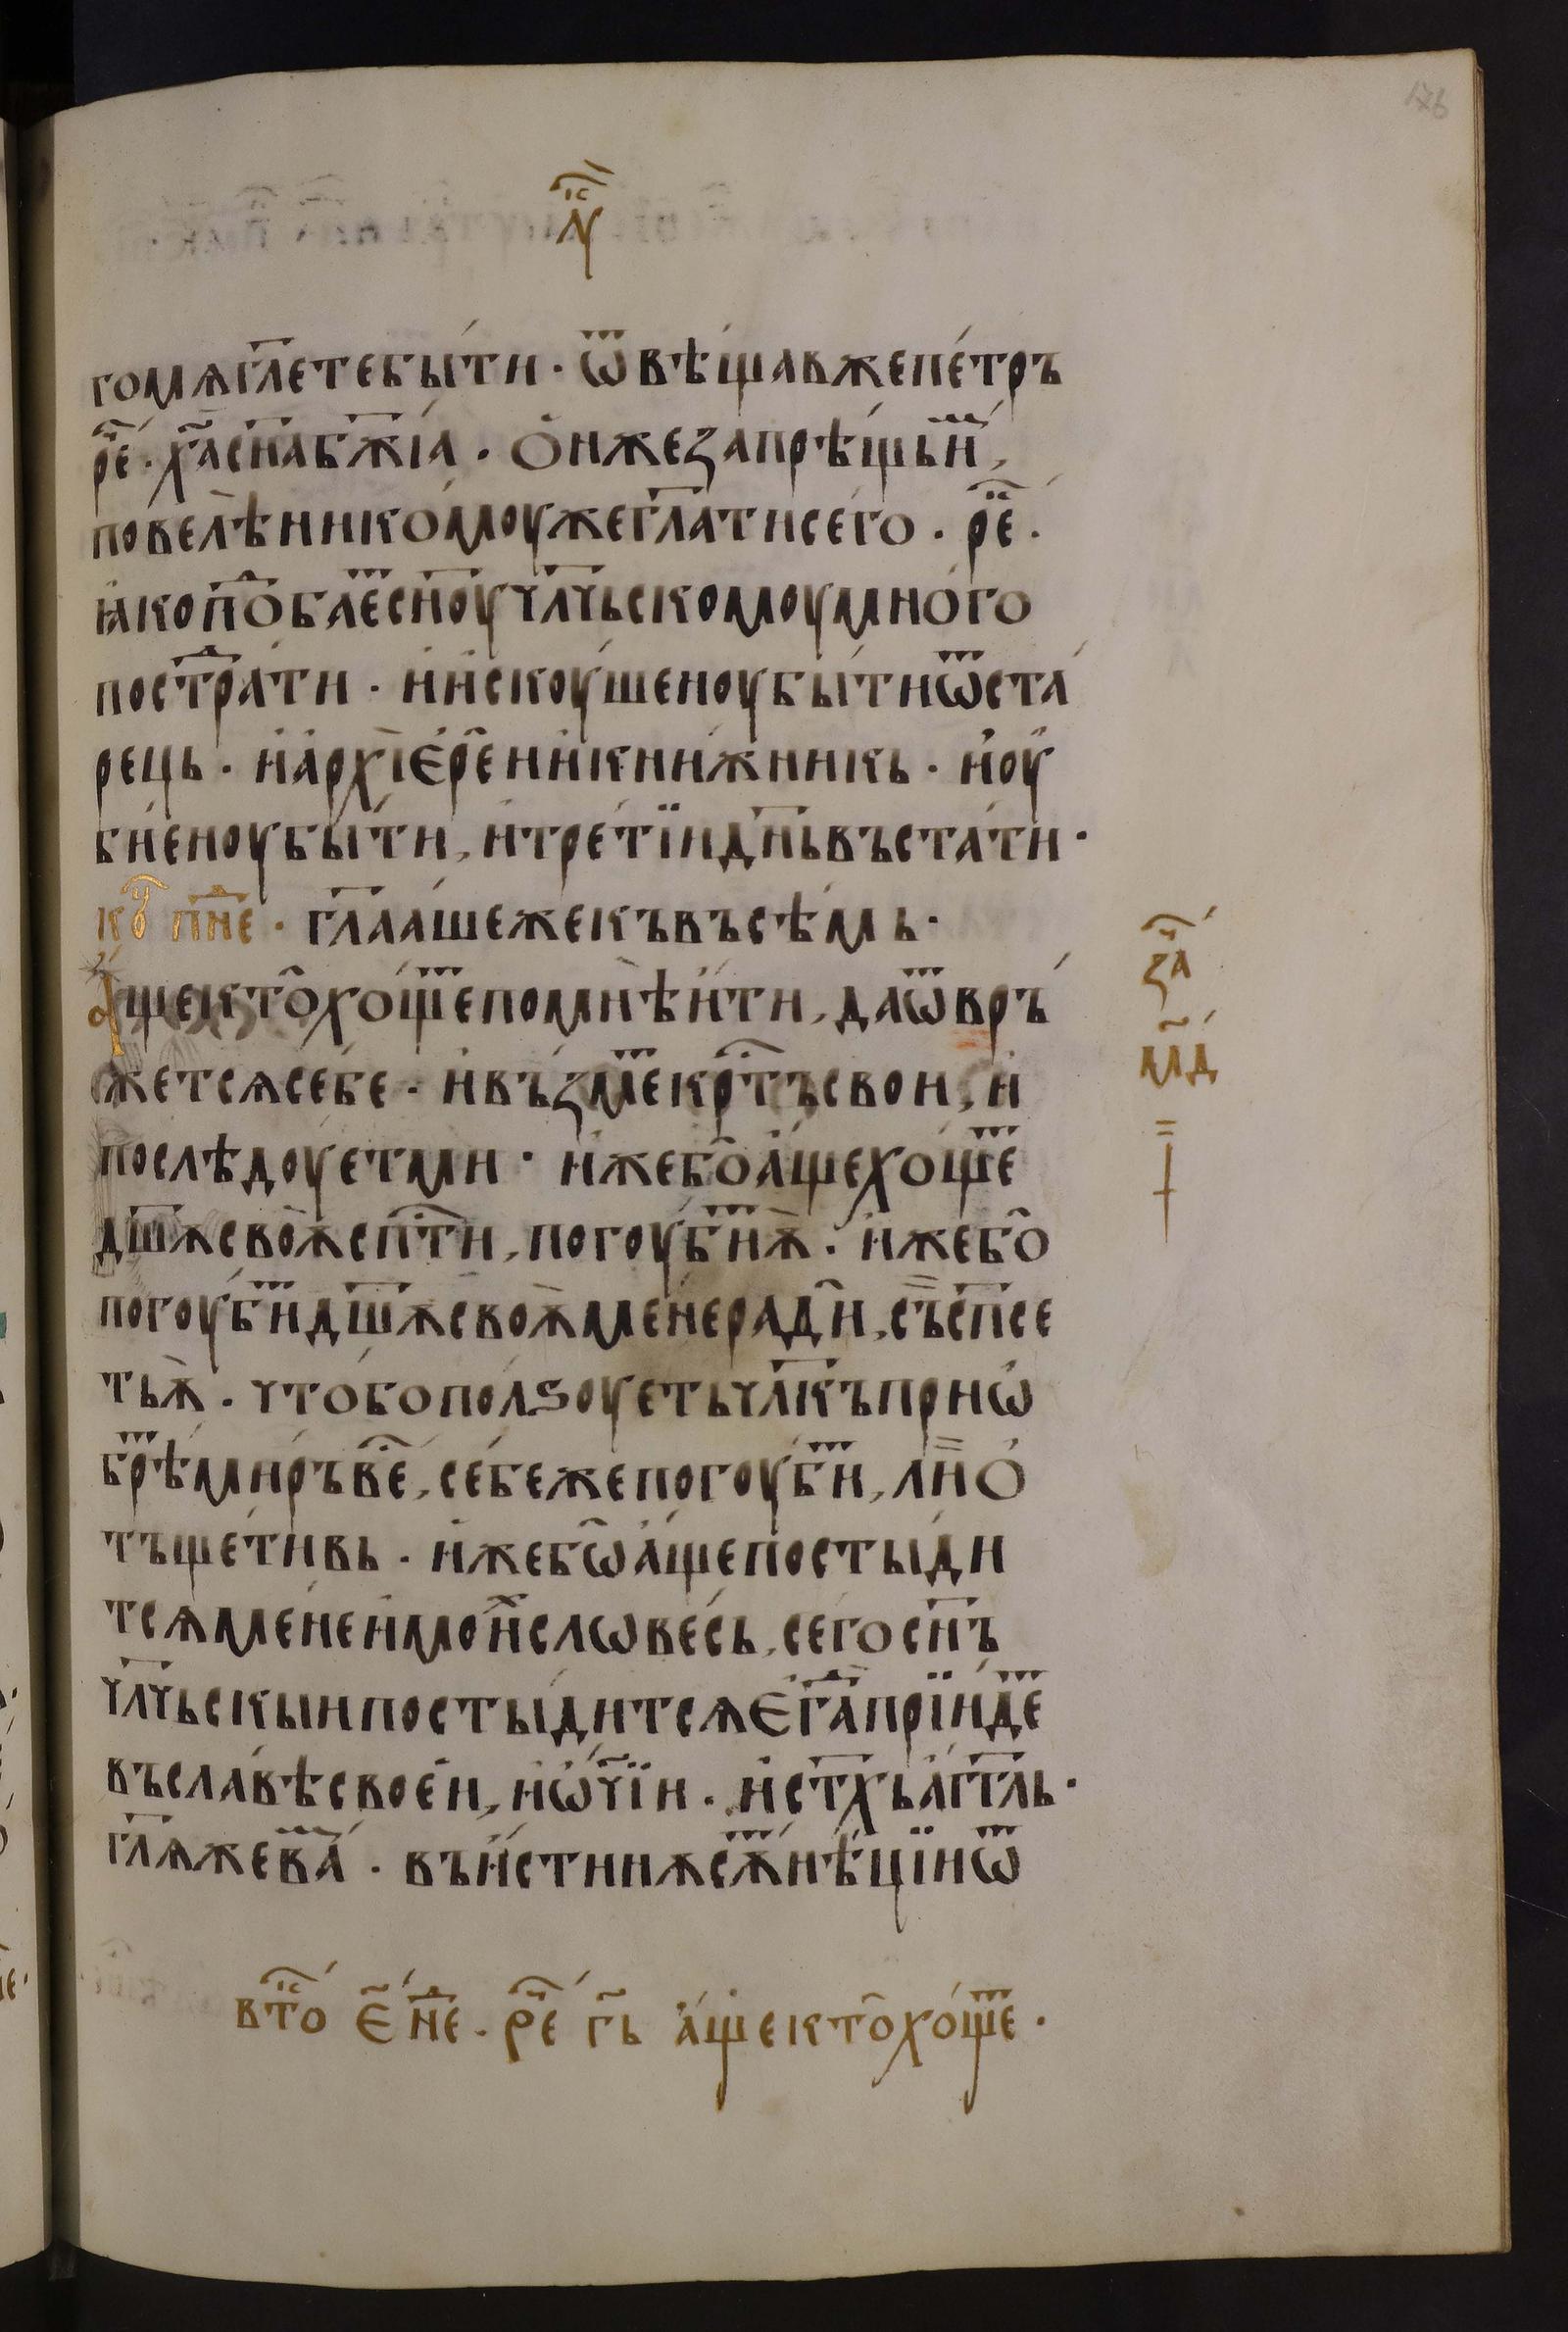 л҃ꙋ
гомѧгл҃етебы́ти · ѿвѣщавжепе́тръ
рⷱ҇е · хⷭ҇а сн҃абж҃їа · онжезапрѣщьиⷨ,
повелѣникомоужегл҃атисего · рⷱ҇е ·
ꙗкопⷣобаⷮесн҃оучл҃чьскомоумно́го
пострⷣати · иискоу́шеноубы́тиѿста
рець · иархїере́иикнижникь · иоу
бїеноубы́ти, итре́тїидн҃ьвъста́ти ·
коⷰ пнⷣе · гл҃аашежекъвъсѣмь ·
А҆щектохо́щеⷮпомнѣити, даѿвръ
жетсѧсебе · ивъзмеⷮкрⷭ҇тъсвои, и
послѣдоуетми · ижебоа́щехо́щеⷮ
дш҃ѫсвоѫсп҃сти, погоубиⷮѫ · ижебо
погоубиⷮдш҃ѫсвоѫменера́ди, съсп҃се
тьѫ · чтобопо́лѕоуетьчл҃къприѡ
брѣⷮмиръвеⷭ҇, себежепогоубиⷮ, лию
тъщети́вь · ижебѡа́щепостыди
тсѧменеимоиⷯсловесь, сегосн҃ъ
чл҃чьскыипостыдитсѧегⷣаприидеⷮ
въславѣсвоеи, иѡч҃їи · ист҃хьагг҃ль ·
гл҃ѧжеваⷨ · въи́стинѫсѫⷮнѣцїиѿ
заⷱ҇
л҃д
вⷮо е҃ нⷣе · рⷱ҇е гь҃ а́щектохо́щеⷮ ·